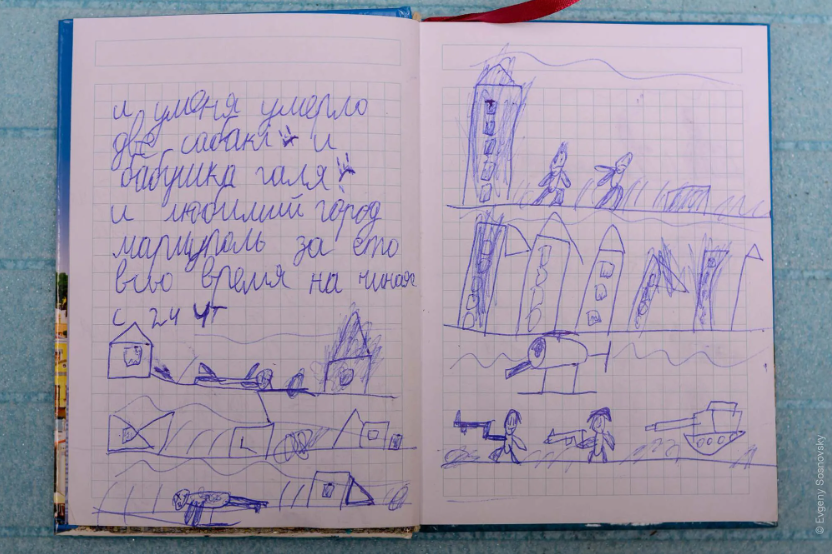 и уменя умерло
две сабакі и
бабушка галя
и любимий город
мариуполь за ето
всю время на чиная
с 24 чт
© Evgeny Sosnovsky